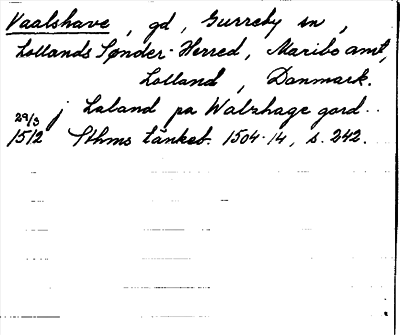 Vaalshave, gd, Gurreby sn,
Lollands Sønder-Herred, Maribo amt,
Lolland, Danmark.
j Laland pa Walzhage gord..
29/3
1512 Sthms tänkeb. 1504-14, s. 242.